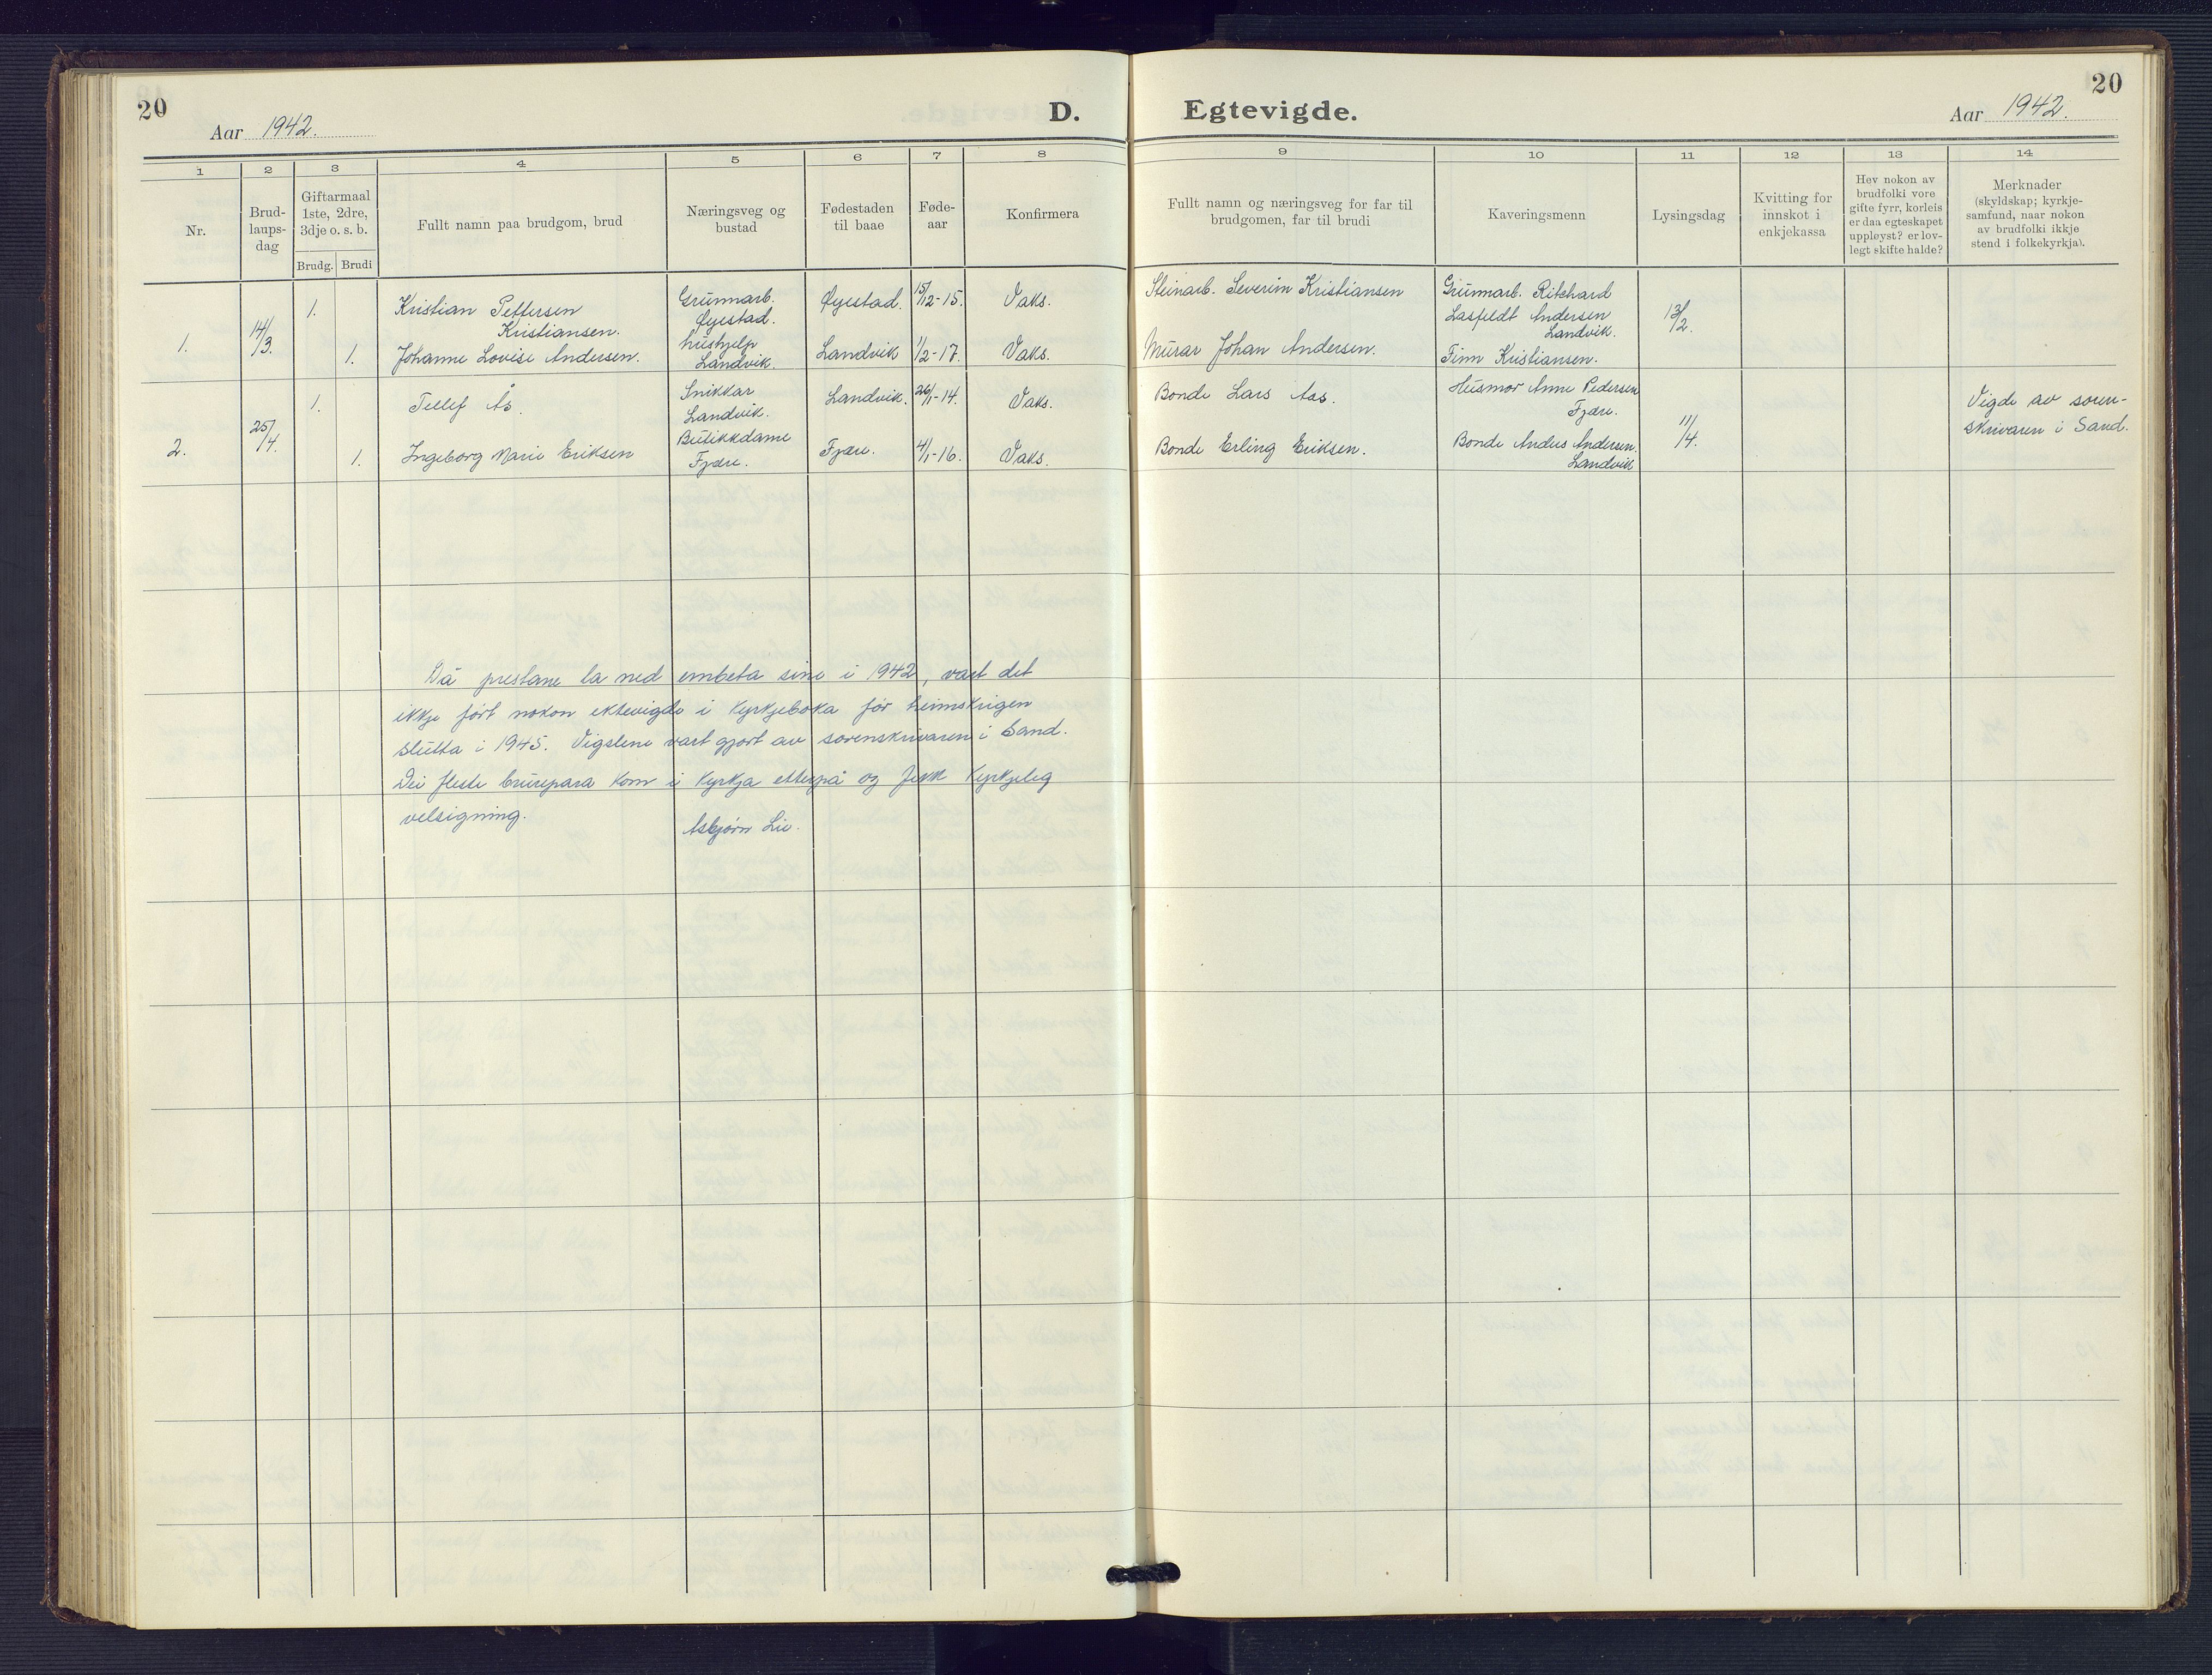 20
Aar 1942.
D.
Egtevigde.
20
Aar 1942.
1
2
3
4
5
6
7
8
9
10
11
12
13
14
Nr.
Brud-
laups-
dag
Giftarmaal
1ste, 2dre,
3dje o. s. b.
Brudg. Brudi
Fullt namn paa brudgom, brud
Næringsveg og
bustad
Fødestaden
til baae
Føde-
aar
Konfirmera
Fullt namn og næringsveg for far til
brudgomen, far til brudi
Kaveringsmenn
Lysingsdag
Kvitting for
innskot i
enkjekassa
Hev nokon av
brudfolki vore
gifte fyrr, korleis
er daa egteskapet
uppløyst? er lov-
legt skifte halde?
Merknader
(skyldskap; kyrkje-
samfund, naar nokon
av brudfolki ikkje
stend i folkekyrkja).
1.
14/3.
1.
Kristian Pettersen
Kristiansen.
Grunnarb.
Øyestad.
Øyestad.
15/12-15.
Vaks.
Steinarb. Severin Kristiansen
Grunnarb. Ritchard
Lasfeldt Andersen
Landvik.
13/2.
1.
Johanne Lovise Andersen.
hushjelp
Landvik.
Landvik
1/2-17.
Vaks.
Murar Johan Andersen.
Finn Kristiansen.
2.
25/4.
1.
Tellef Ås.
Snikkar
Landvik.
Landvik.
26/1-14.
Vaks.
Bonde Lars Aas.
Husmor Anne Pedersen
Fjære.
11/4.
Vigde av soren-
skrivaren i Sand.
1.
Ingeborg Marie Eriksen
Butikkdame
Fjære.
Fjære.
4/1-16.
Vaks.
Bonde Erling Eriksen.
Bonde Andus Andersen.
Landvik
Då prestane la ned embeta sine i 1942, vart det
ikkje ført nokon ektevigde i kyrkjeboka før heimskrigen
slutta i 1945. Vigslene vart gjort av sorenskrivaren i Sand.
Dei fleste brurepara kom i kyrkja etterpå og fekk kyrkjeleg
velsigning.
Asbjørn Lie.